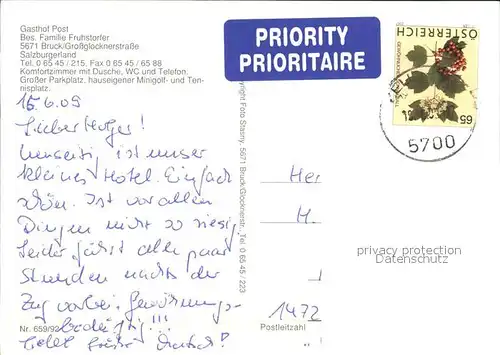 Gasthof Post
Bes. Familie Fruhstorfer
5671 Bruck/Großglocknerstraße
Salzburgerland
Tel. 0 65 45 / 215, Fax 0 65 45 / 65 88
Komfortzimmer mit Dusche, WC und Telefon,
Großer Parkplatz, hauseigener Minigolf- und Ten-
nisplatz.
15.6.09
Lieber Holger!
Umseitig ist unser
kleines Hotel. Einfach
schön. Ist vor allen
Dingen nicht so riesig
Leider fährt alle paar
Stunden nachts der
Zug vorbei. Gewöhnungs-
bedürftig!!!
Nr. 659/92
yright Foto Stasny, 5671 Bruck/Glocknerstr., Tel. 0 65 45 / 223
PRIORITY
PRIORITAIRE
ÖSTERREICH
65
5700
Her
H.
1472
Postleitzahl
privacy protection
Datenschutz